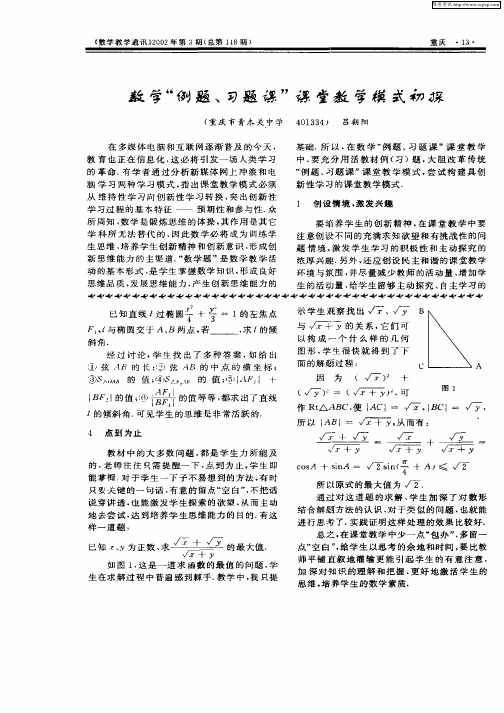 维普资讯 http://www.cqvip.com
《数学教学通讯》2002年第3期(总第148期)
重庆 ·13·
数学“例题、习题课”课堂教学模式初探
(重庆市青木关中学 401334) 吕朝阳
在多媒体电脑和互联网逐渐普及的今天,
教育也正在信息化,这必将引发一场人类学习
的革命.有学者通过分析新媒体网上冲浪和电
脑学习两种学习模式,指出课堂教学模式必须
从维持性学习向创新性学习转换,突出创新性
学习过程的基本特征——预期性和参与性.众
所周知,数学是锻炼思维的体操,其作用是其它
学科所无法替代的,因此数学必将成为训练学
生思维、培养学生创新精神和创新意识、形成创
新思维能力的主渠道.“数学题”是数学教学活
动的基本形式,是学生掌握数学知识,形成良好
思维品质,发展思维能力,产生创新思维能力的
基础.所以,在数学“例题、习题课”课堂教学
中,要充分用活教材例(习)题,大胆改革传统
“例题、习题课”课堂教学模式,尝试构建具创
新性学习的课堂教学模式.
1 创设情境,激发兴趣
要培养学生的创新精神,在课堂教学中要
注意创设不同的充满求知欲望和有挑战性的问
题情境,激发学生学习的积极性和主动探究的
浓厚兴趣.另外,还应创设民主和谐的课堂教学
环境与氛围,并尽量减少教师的活动量,增加学
生的活动量,给学生留够主动探究、自主学习的
已知直线 l 过椭圆 x²/4 + y²/3 = 1 的左焦点
F₁,l 与椭圆交于 A、B 两点,若____,求 l 的倾
斜角.
经过讨论,学生找出了多种答案,如给出
①弦 AB 的长;②弦 AB 的中点的横坐标;
③S△OAB 的值;④S△F₂AB 的值;⑤|AF₁| +
|BF₂| 的值;⑥ |AF₁|/|BF₁| 的值等等,都求出了直线
l 的倾斜角.可见学生的思维是非常活跃的.
4 点到为止
教材中的大多数问题,都是学生力所能及
的,老师往往只需提醒一下,点到为止,学生即
能掌握.对于学生一下子不易想到的方法,有时
只要关键的一句话,有意的留点“空白”,不把话
说穿讲透,也能激发学生探索的欲望,从而主动
地去尝试,达到培养学生思维能力的目的.有这
样一道题:
已知 x、y 为正数,求 (√x + √y)/√(x + y) 的最大值.
如图1,这是一道求函数的最值的问题,学
生在求解过程中普遍感到棘手.教学中,我只提
示学生观察找出 √x、√y
与 √(x + y) 的关系,它们可
以构成一个什么样的几何
图形,学生很快就得到了下
面的解题过程:
因为 (√x)² +
(√y)² = (√(x + y))²,可
B
C
A
图1
作 Rt△ABC,使 |AC| = √x,|BC| = √y,
所以 |AB| = √(x + y),从而有:
(√x + √y)/√(x + y) = √x/√(x + y) + √y/√(x + y) =
cosA + sinA = √2 sin(π/4 + A) ≤ √2
所以原式的最大值为 √2.
通过对这道题的求解,学生加深了对数形
结合解题方法的认识,对于类似的问题,也就能
进行思考了,实践证明这样处理的效果比较好.
总之,在课堂教学中少一点“包办”,多留一
点“空白”,给学生以思考的余地和时间,要比教
师平铺直叙地灌输更能引起学生的有意注意,
加深对知识的理解和把握,更好地激活学生的
思维,培养学生的数学素质.